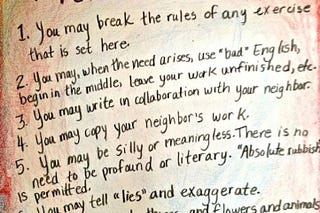 1. You may break the rules of any exercise
that is set here.
2. You may, when the need arises, use "bad" English,
begin in the middle, leave your work unfinished, etc.
3. You may write in collaboration with your neighbor.
4. You may copy your neighbor's work.
5. You may be silly or meaningless. There is no
need to be profound or literary. "Absolute rubbish
is permitted.
You may tell "lies" and exaggerate.
and flowers and animals